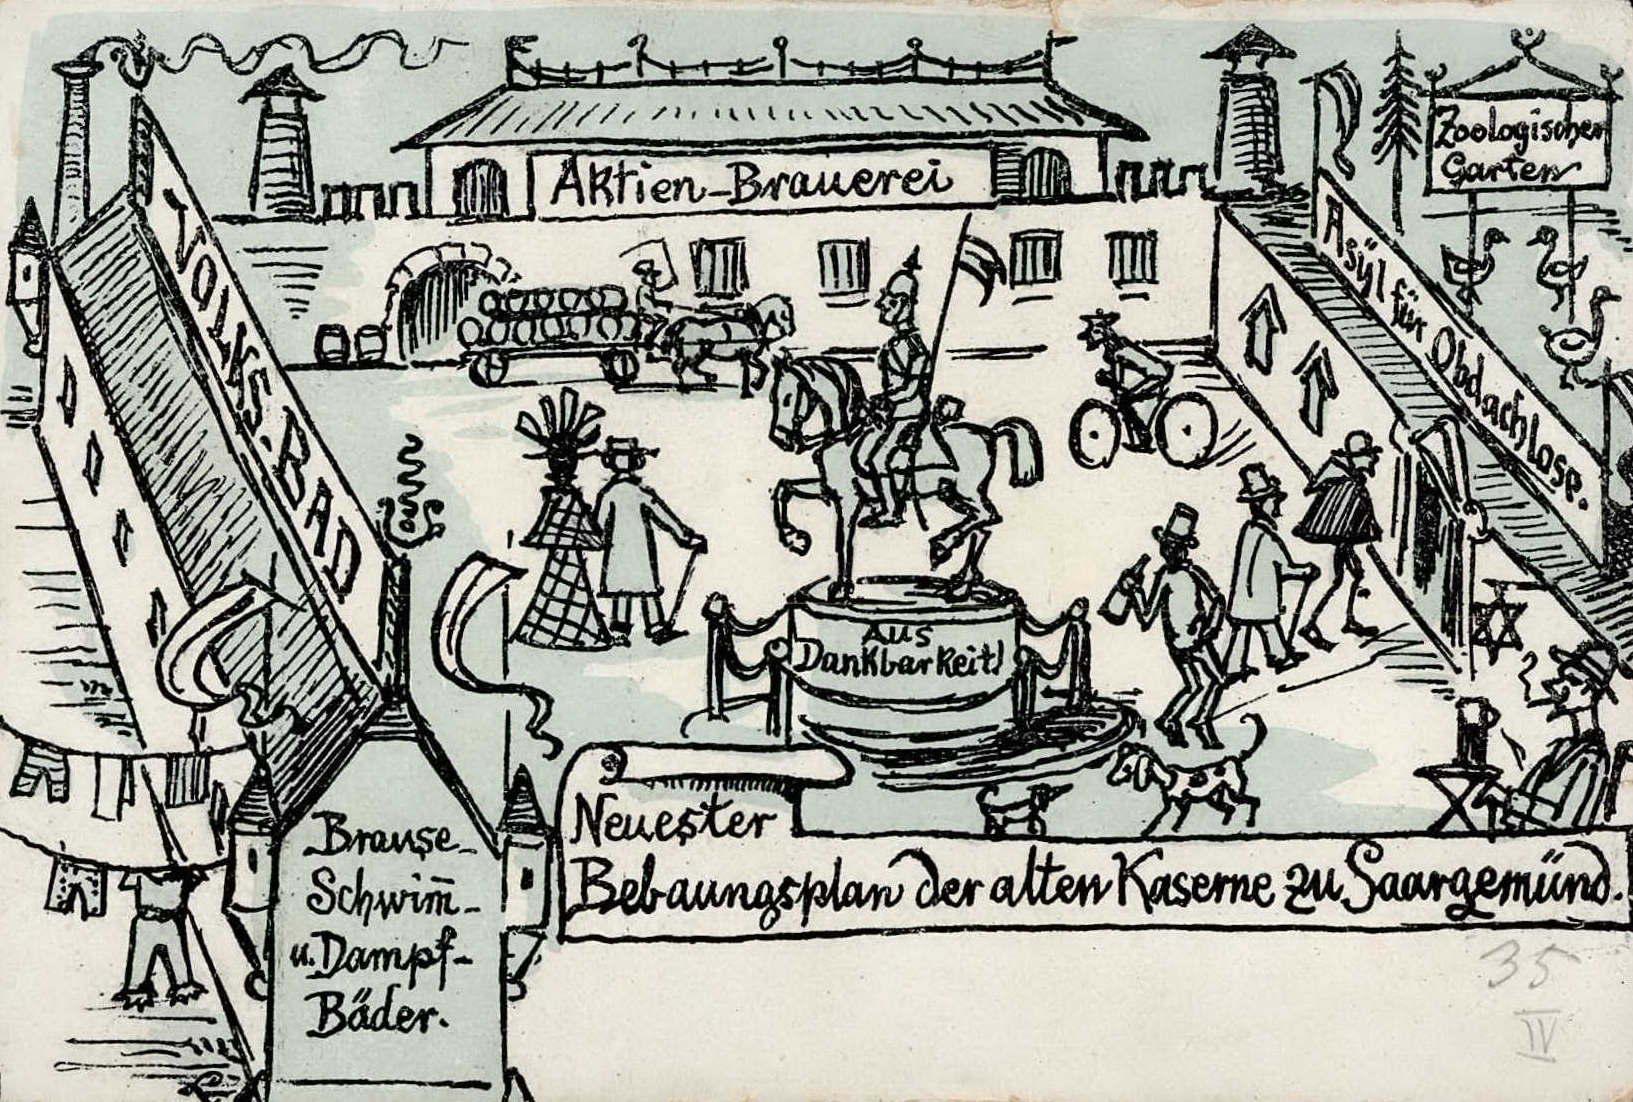 Zoologischer
Garten
Aktien-Brauerei
VOLKS-BAD
Asÿl für Obdachlose.
Aus
Dankbarkeit!
Neuester
Bebaungsplan der alten Kaserne zu Saargemünd.
Brause-
Schwim̄-
u. Dampf-
Bäder.
35
IV